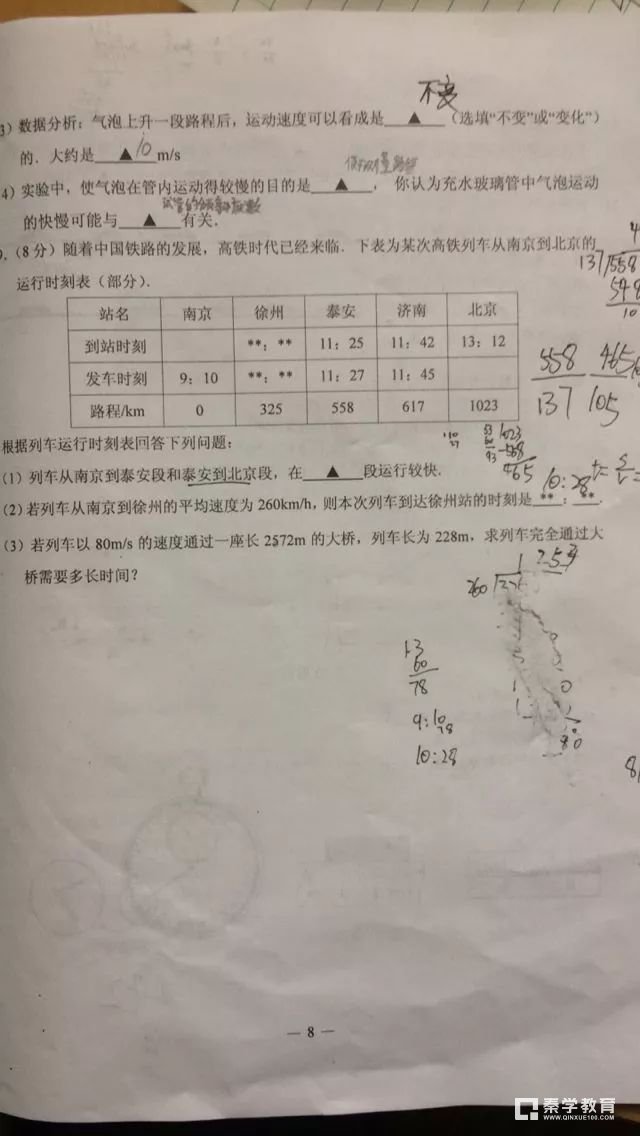 不变
3）数据分析：气泡上升一段路程后，运动速度可以看成是 ▲ （选填“不变”或“变化”）
的．大约是 ▲10 m/s
4）实验中，使气泡在管内运动得较慢的目的是 ▲ ，你认为充水玻璃管中气泡运动
的快慢可能与 ▲ 有关．
．（8分）随着中国铁路的发展，高铁时代已经来临．下表为某次高铁列车从南京到北京的
运行时刻表（部分）．
站名 南京 徐州 泰安 济南 北京
到站时刻 **：** 11：25 11：42 13：12
发车时刻 9：10 **：** 11：27 11：45
路程/km 0 325 558 617 1023
137 558
548
10
558 465
137 105
根据列车运行时刻表回答下列问题：
1023
465
（1）列车从南京到泰安段和泰安到北京段，在 ▲ 段运行较快．
10：28
（2）若列车从南京到徐州的平均速度为260km/h，则本次列车到达徐州站的时刻是 **：** ．
（3）若列车以80m/s的速度通过一座长2572m的大桥，列车长为228m，求列车完全通过大
桥需要多长时间？
260
1.3
60
78
9:10
78
10:28
— 8 —
秦学教育
WWW.QINXUE100.COM